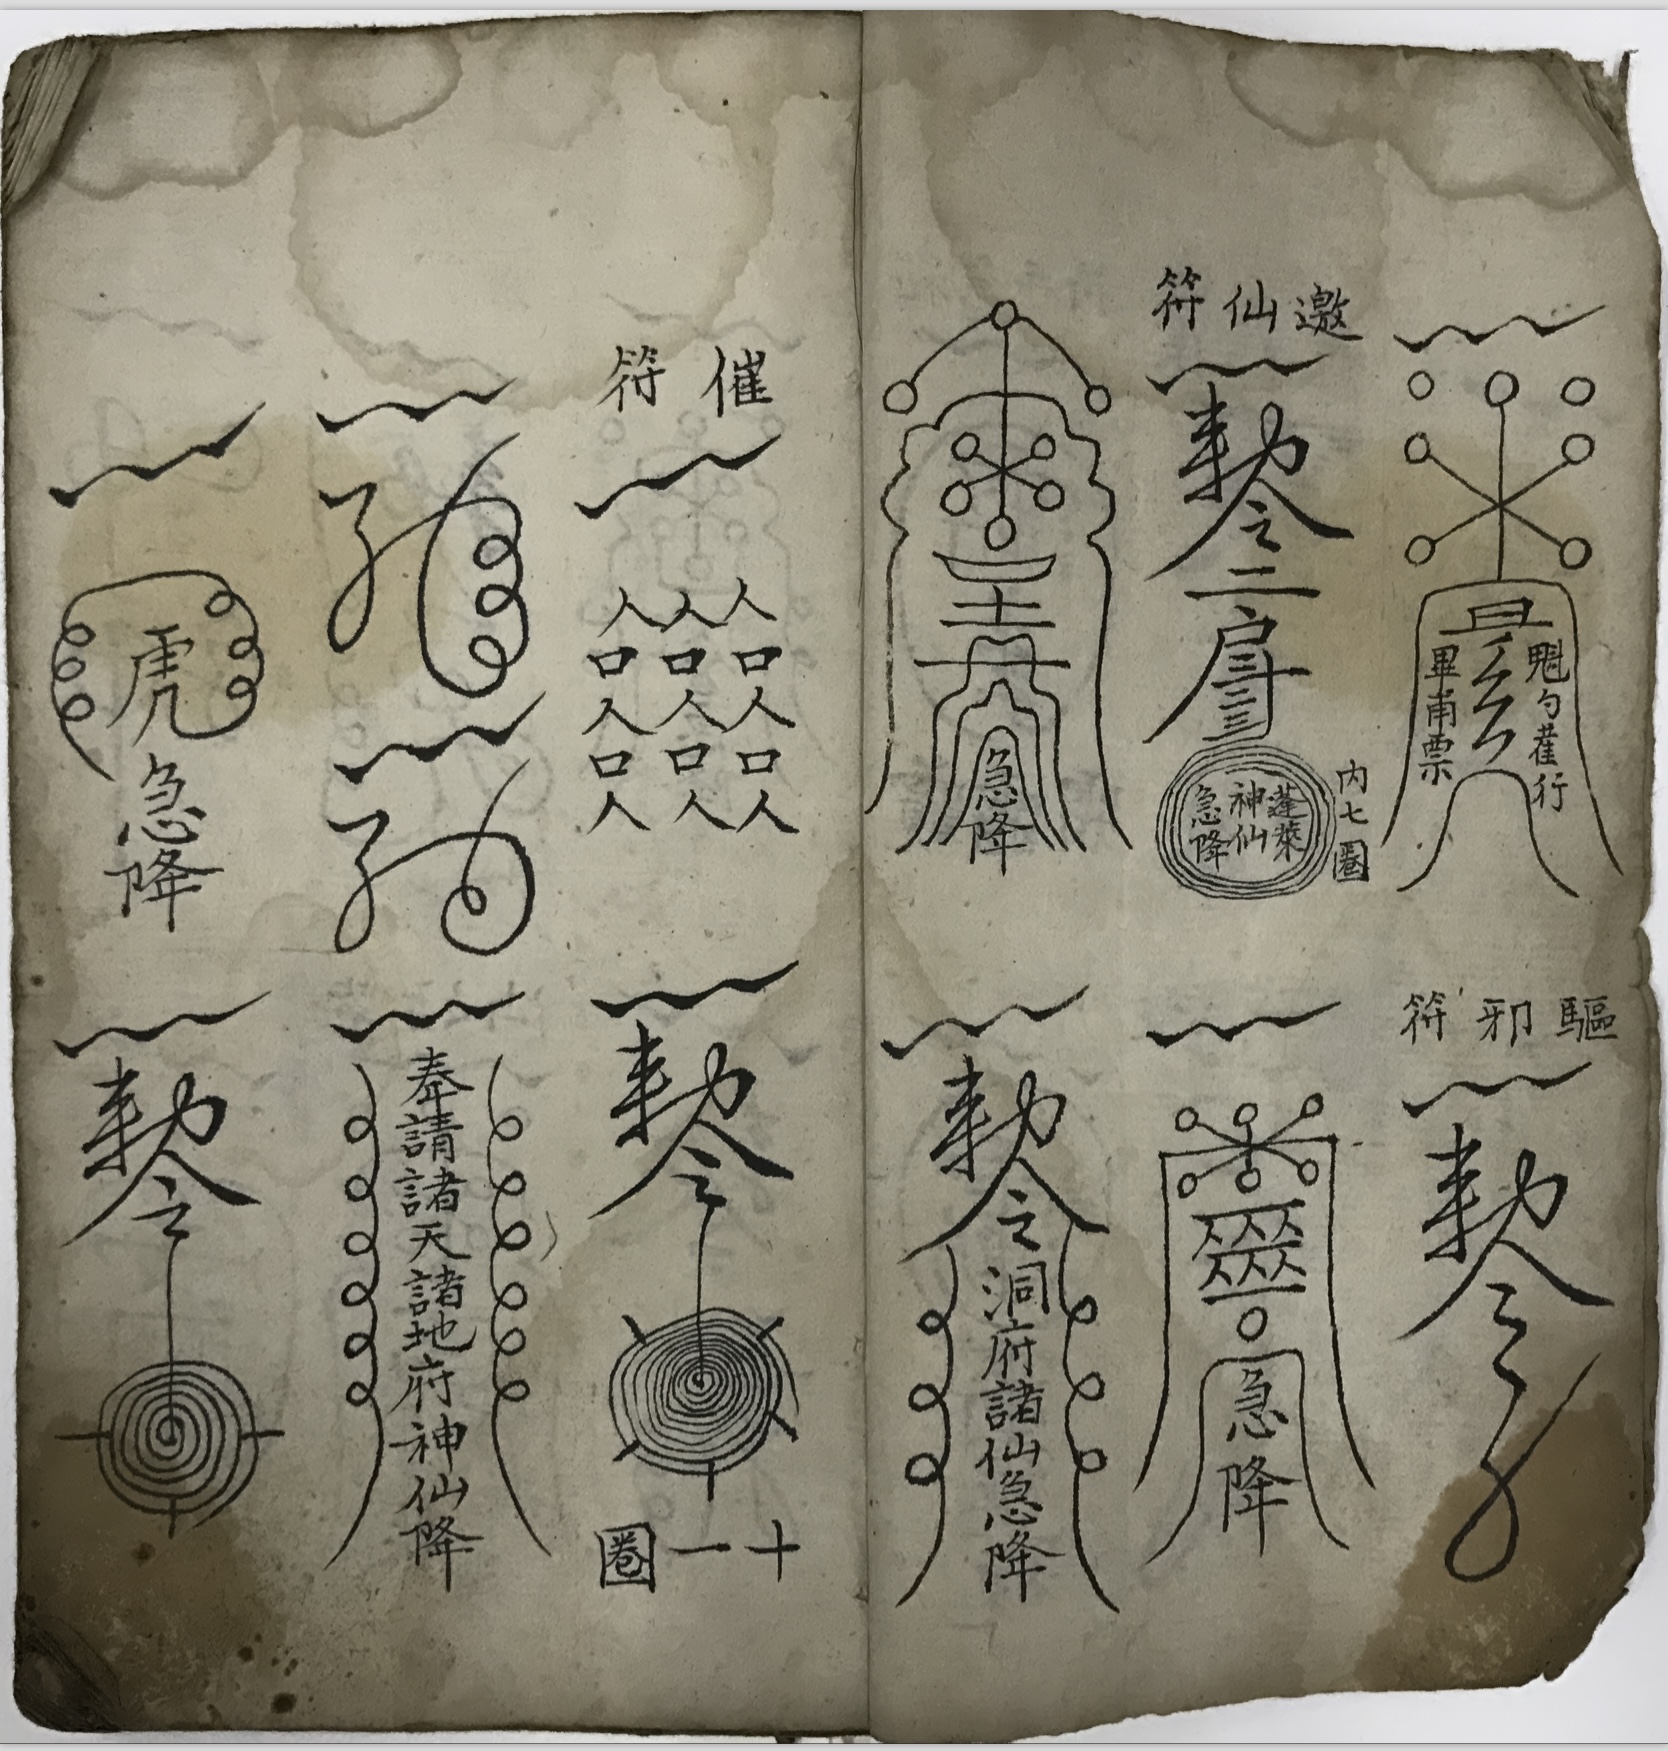 魁勺雚行
畢甫票
邀仙符
敕令
二
蓬萊
神仙
急降
內七圈
急降
驅邪符
敕令
急降
敕令
洞府諸仙急降
催符
人人人
口口口
人人人
口口口
人人人
虎
急降
敕令
十一圈
奉請諸天諸地府神仙降
敕令